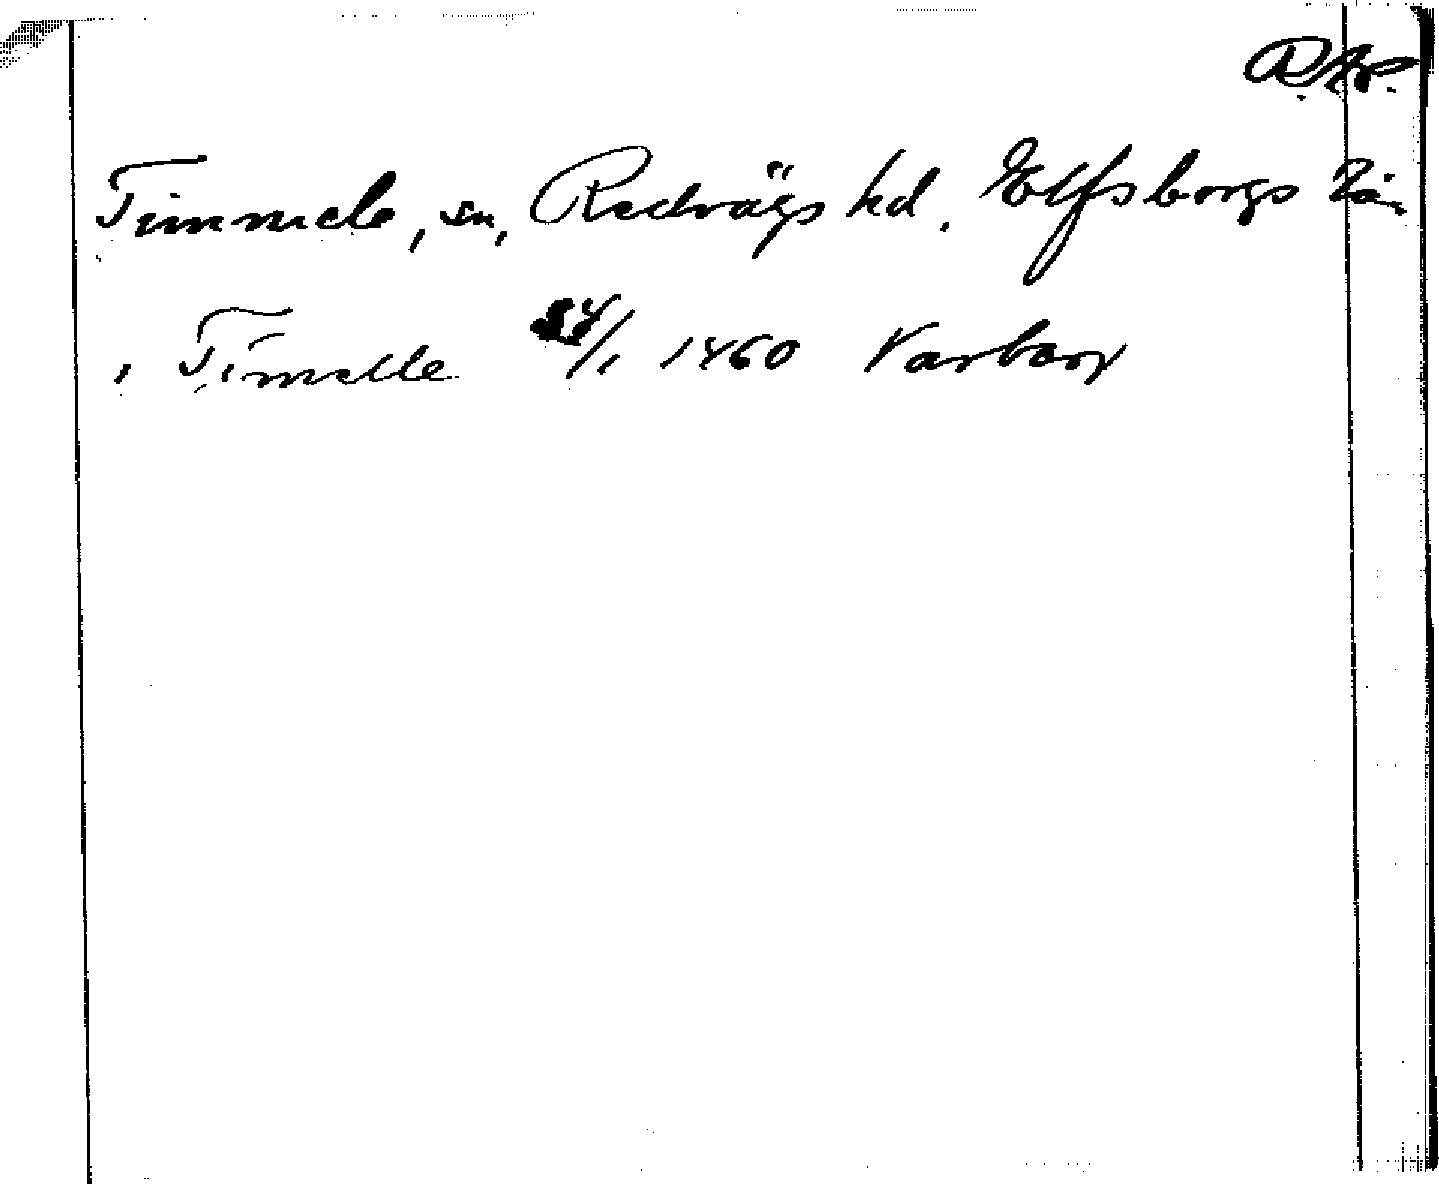 R.Ap.
Timmele, sn, Redvägs hd. Elfsborgs län
i Timelle 24/1 1460 Varberg